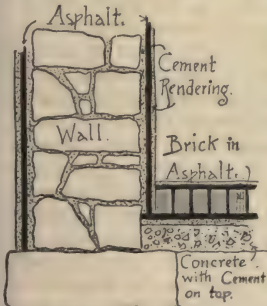 Asphalt.
Cement
Rendering.
Wall.
Brick in
Asphalt.
Concrete
with Cement
on top.